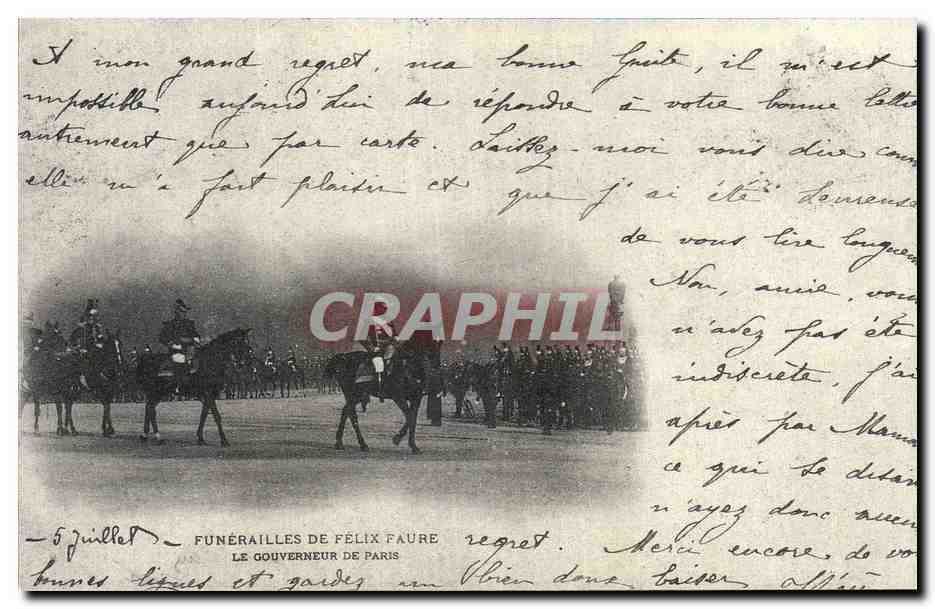 A mon grand regret, ma bonne Guite, il m'est
impossible aujourd'hui de répondre à votre bonne lettre
autrement que par carte. Laissez-moi vous dire com
elle m'a fait plaisir et que j'ai été heureuse
de vous lire longuem
Non, amie, vous
n'avez pas été
indiscrète, j'ai
après par Maman
ce qui se disai
n'ayez donc aucun
CARAPHIL
- 5 Juillet - FUNÉRAILLES DE FÉLIX FAURE regret. Merci encore de vo
LE GOUVERNEUR DE PARIS
bonnes lignes et gardez un bien doux baiser